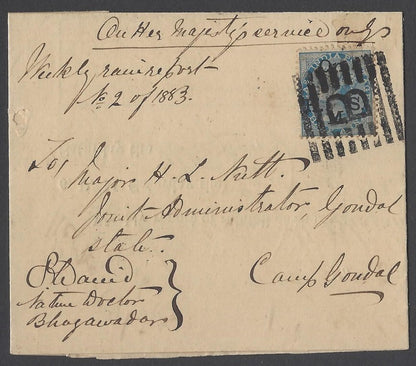 On Her Majesty's service only
Weekly rain report
No 2 of 1883.
To,
Major H. L. Nutt.
Joint Administrator, Gondal
state.
Camp Gondal
Native Doctor
Bhayawadar